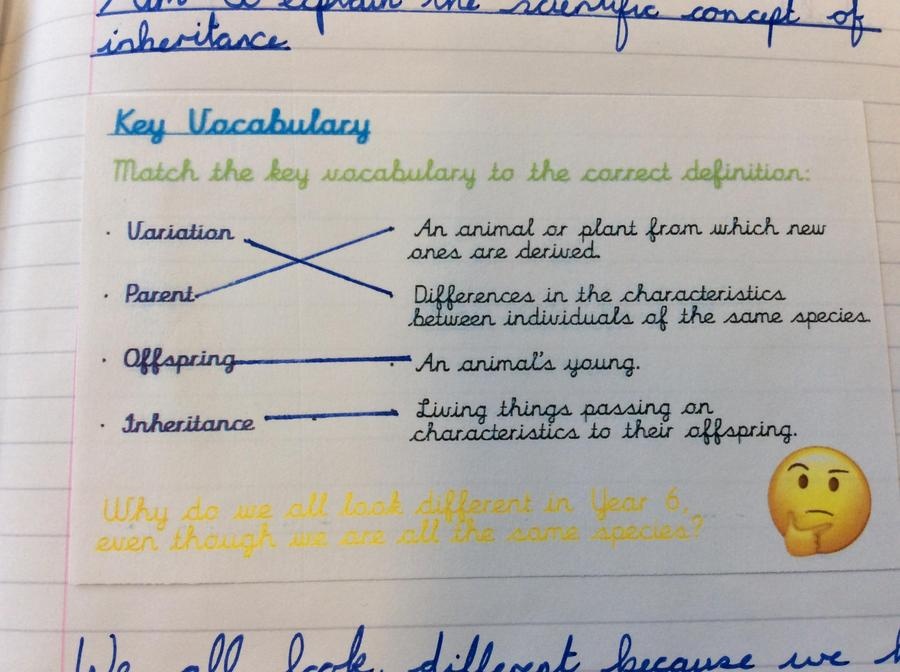 I am to explain the scientific concept of
inheritance.
Key Vocabulary
Match the key vocabulary to the correct definition:
· Variation
An animal or plant from which new
ones are derived.
· Parent
Differences in the characteristics
between individuals of the same species.
· Offspring
· An animal's young.
· Inheritance
Living things passing on
characteristics to their offspring.
Why do we all look different in Year 6,
even though we are all the same species?
We all look different because we